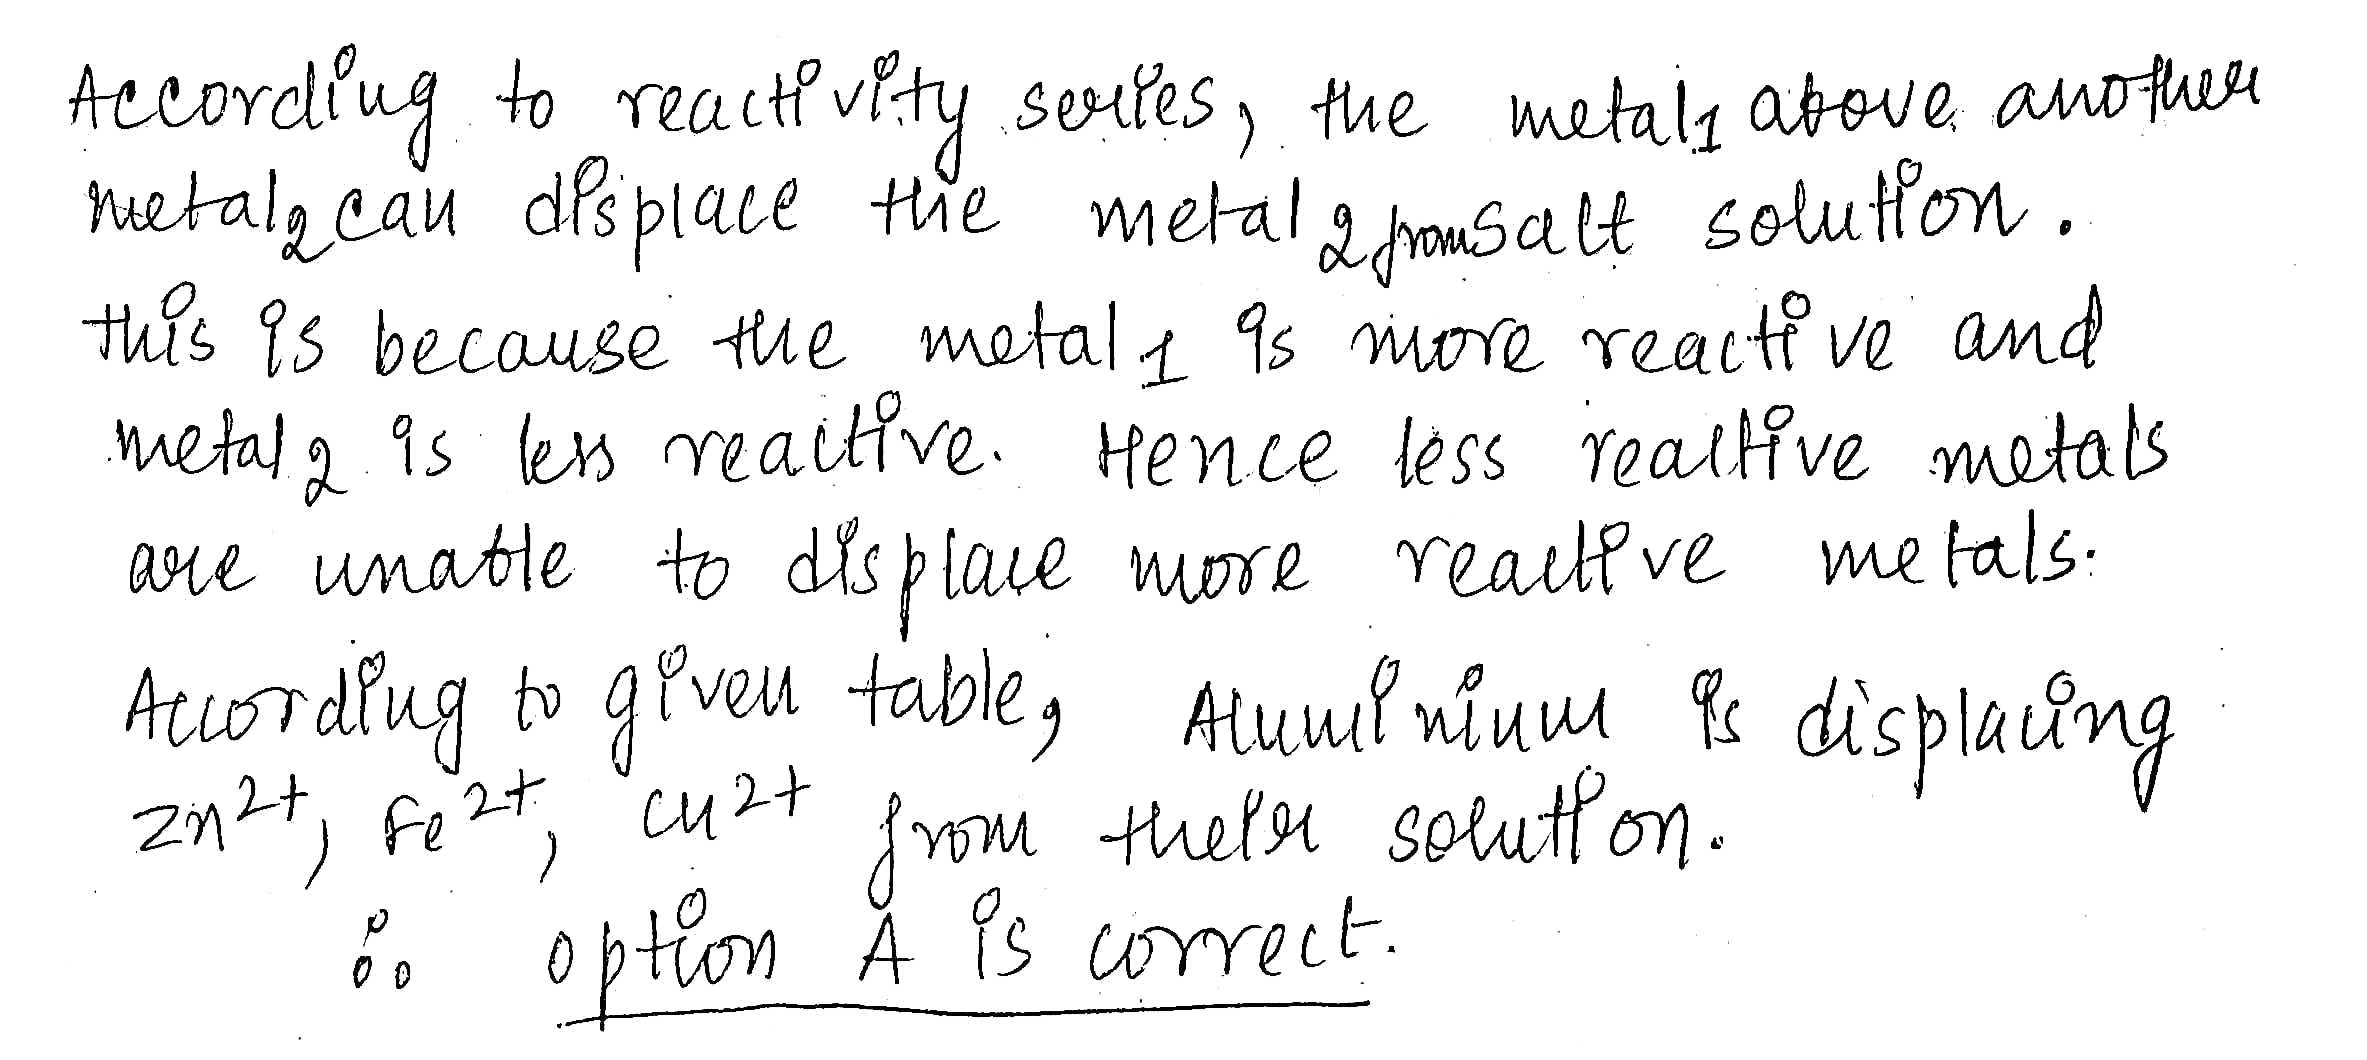 According to reactivity series, the metal₁ above another
metal₂ can displace the metal₂ from salt solution.
this is because the metal₁ is more reactive and
metal₂ is less reactive. Hence less reactive metals
are unable to displace more reactive metals.
According to given table, Aluminium is displacing
Zn²⁺, Fe²⁺, Cu²⁺ from their solution.
∴ option A is correct.